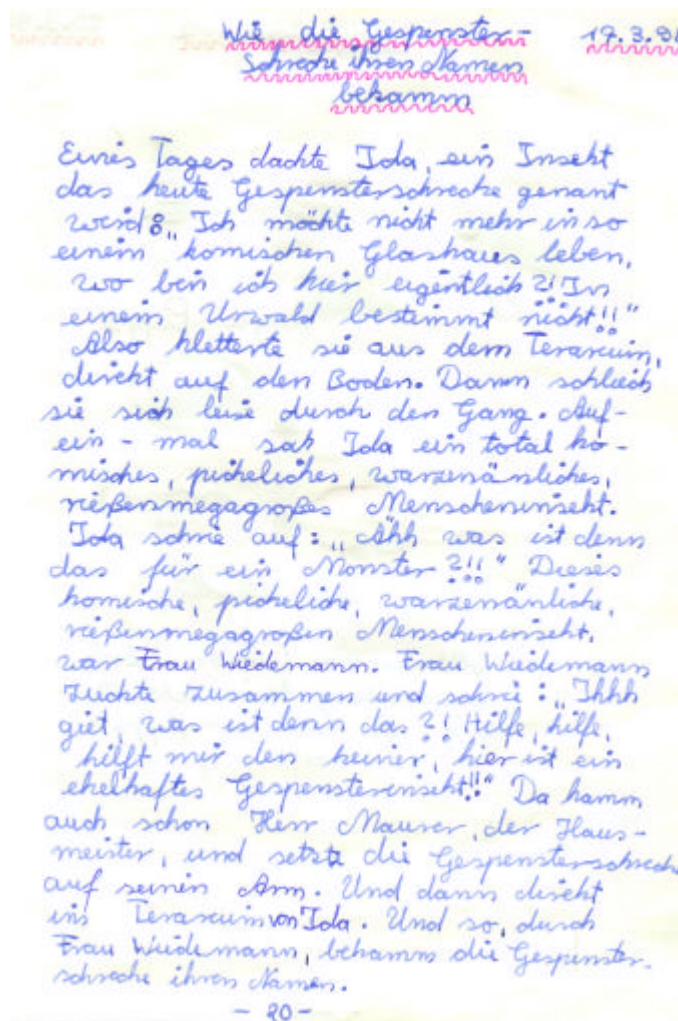 Wie die Gespenster- 19.3.98
Schrecke ihren Namen
bekamm
Eines Tages dachte Ida, ein Insekt
das heute Gespensterschrecke genant
wird: „Ich möchte nicht mehr in so
einem komischen Glashaus leben,
wo bin ich hier eigentlich?! In
einem Urwald bestimmt nicht!!“
Also kletterte sie aus dem Terarium,
direkt auf den Boden. Dann schlich
sie sich leise durch den Gang. Auf-
ein-mal sah Ida ein total ko-
misches, pickeliches, warzenänliches,
rießenmegagroßes Menscheninsekt.
Ida schrie auf: „Ähh was ist denn
das für ein Monster?!!“ Dieses
komische, pickeliche, warzenänliche,
rießenmegagroßen Menscheninsekt,
war Frau Wiedemann. Frau Wiedemann
zuckte zusammen und schrie: „Ihhh
giet, was ist denn das?! Hilfe, hilfe,
hilft mir den keiner, hier ist ein
ekelhaftes Gespensterinsekt!!“ Da kamm
auch schon Herr Maurer, der Haus-
meister, und setzte die Gespensterschrecke
auf seinen Arm. Und dann direkt
ins Terarium von Ida. Und so, durch
Frau Wiedemann, bekamm die Gespenster-
schrecke ihren Namen.
- 20 -